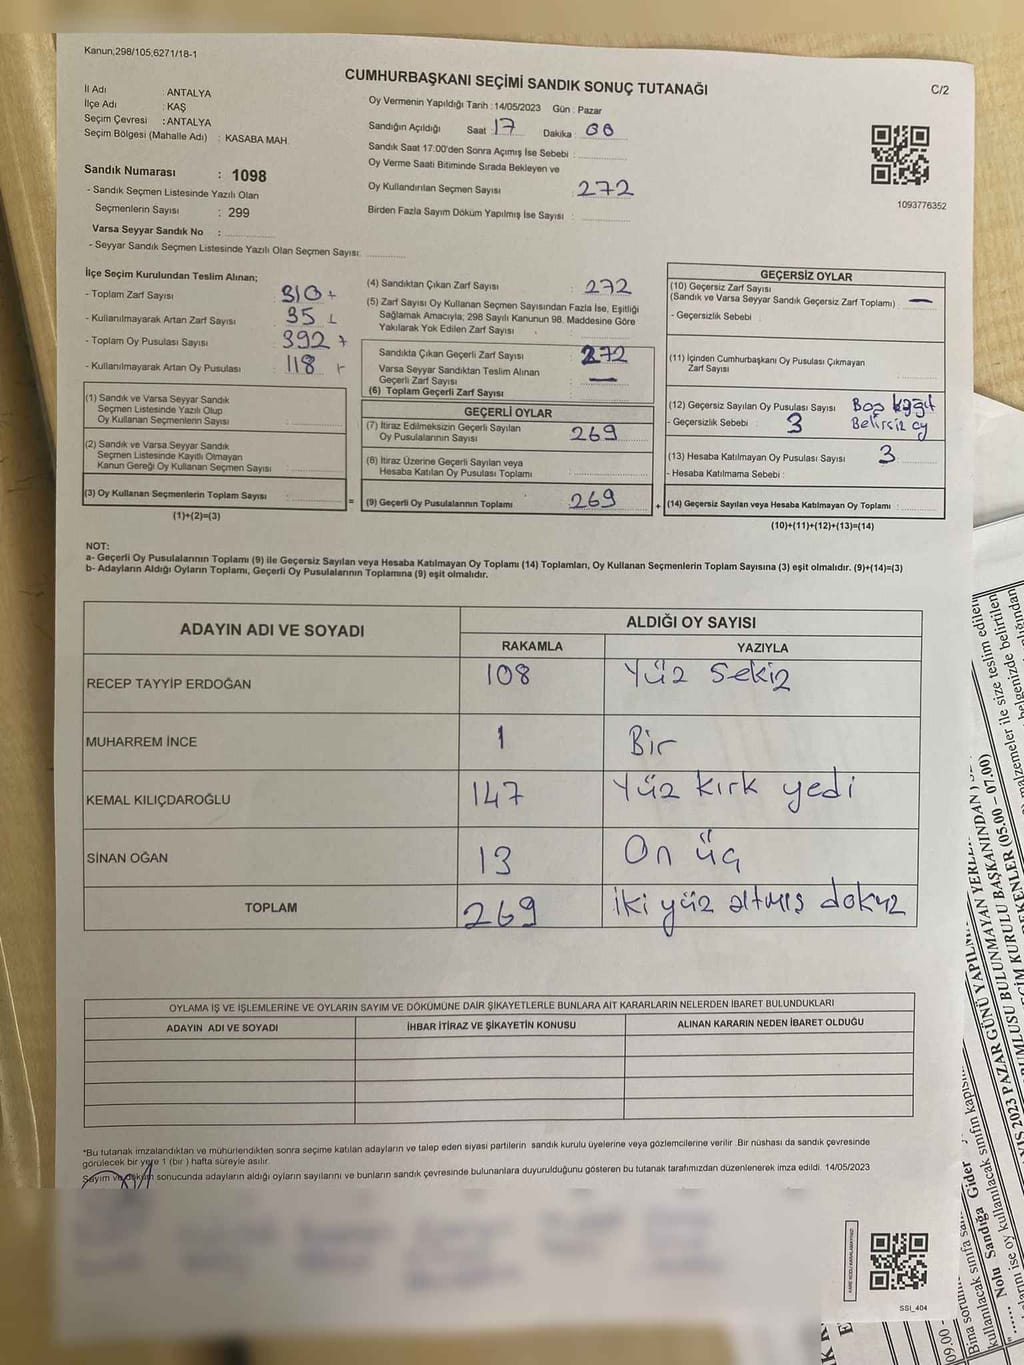 Kanun;298/105;6271/18-1
CUMHURBAŞKANI SEÇİMİ SANDIK SONUÇ TUTANAĞI
C/2
İl Adı : ANTALYA
İlçe Adı : KAŞ
Seçim Çevresi : ANTALYA
Seçim Bölgesi (Mahalle Adı) : KASABA MAH.
Sandık Numarası : 1098
- Sandık Seçmen Listesinde Yazılı Olan
Seçmenlerin Sayısı : 299
Varsa Seyyar Sandık No :
- Seyyar Sandık Seçmen Listesinde Yazılı Olan Seçmen Sayısı:
Oy Vermenin Yapıldığı Tarih : 14/05/2023 Gün : Pazar
Sandığın Açıldığı Saat : 17 Dakika : 00
Sandık Saat 17:00'den Sonra Açımış İse Sebebi :
Oy Verme Saati Bitiminde Sırada Bekleyen ve
Oy Kullandırılan Seçmen Sayısı : 272
Birden Fazla Sayım Döküm Yapılmış İse Sayısı :
1093776352
İlçe Seçim Kurulundan Teslim Alınan;
- Toplam Zarf Sayısı : 310
- Kullanılmayarak Artan Zarf Sayısı : 35
- Toplam Oy Pusulası Sayısı : 392
- Kullanılmayarak Artan Oy Pusulası : 118
(1) Sandık ve Varsa Seyyar Sandık
Seçmen Listesinde Yazılı Olup
Oy Kullanan Seçmenlerin Sayısı :
(2) Sandık ve Varsa Seyyar Sandık
Seçmen Listesinde Kayıtlı Olmayan
Kanun Gereği Oy Kullanan Seçmen Sayısı :
(3) Oy Kullanan Seçmenlerin Toplam Sayısı :
(1)+(2)=(3)
(4) Sandıktan Çıkan Zarf Sayısı : 272
(5) Zarf Sayısı Oy Kullanan Seçmen Sayısından Fazla İse, Eşitliği
Sağlamak Amacıyla; 298 Sayılı Kanunun 98. Maddesine Göre
Yakılarak Yok Edilen Zarf Sayısı :
Sandıkta Çıkan Geçerli Zarf Sayısı : 272
Varsa Seyyar Sandıktan Teslim Alınan
Geçerli Zarf Sayısı : —
(6) Toplam Geçerli Zarf Sayısı :
GEÇERLİ OYLAR
(7) İtiraz Edilmeksizin Geçerli Sayılan
Oy Pusulalarının Sayısı : 269
(8) İtiraz Üzerine Geçerli Sayılan veya
Hesaba Katılan Oy Pusulası Toplamı :
= (9) Geçerli Oy Pusulalarının Toplamı : 269
GEÇERSİZ OYLAR
(10) Geçersiz Zarf Sayısı
(Sandık ve Varsa Seyyar Sandık Geçersiz Zarf Toplamı) : —
- Geçersizlik Sebebi :
(11) İçinden Cumhurbaşkanı Oy Pusulası Çıkmayan
Zarf Sayısı :
(12) Geçersiz Sayılan Oy Pusulası Sayısı : Boş kağıt
- Geçersizlik Sebebi : 3 Belirsiz oy
(13) Hesaba Katılmayan Oy Pusulası Sayısı : 3
- Hesaba Katılmama Sebebi :
+ (14) Geçersiz Sayılan veya Hesaba Katılmayan Oy Toplamı :
(10)+(11)+(12)+(13)=(14)
NOT:
a- Geçerli Oy Pusulalarının Toplamı (9) ile Geçersiz Sayılan veya Hesaba Katılmayan Oy Toplamı (14) Toplamları, Oy Kullanan Seçmenlerin Toplam Sayısına (3) eşit olmalıdır. (9)+(14)=(3)
b- Adayların Aldığı Oyların Toplamı, Geçerli Oy Pusulalarının Toplamına (9) eşit olmalıdır.
ADAYIN ADI VE SOYADI
ALDIĞI OY SAYISI
RAKAMLA YAZIYLA
RECEP TAYYİP ERDOĞAN 108 Yüz sekiz
MUHARREM İNCE 1 Bir
KEMAL KILIÇDAROĞLU 147 Yüz kırk yedi
SİNAN OĞAN 13 On üç
TOPLAM 269 İki yüz altmış dokuz
OYLAMA İŞ VE İŞLEMLERİNE VE OYLARIN SAYIM VE DÖKÜMÜNE DAİR ŞİKAYETLERLE BUNLARA AİT KARARLARIN NELERDEN İBARET BULUNDUKLARI
ADAYIN ADI VE SOYADI İHBAR İTİRAZ VE ŞİKAYETİN KONUSU ALINAN KARARIN NEDEN İBARET OLDUĞU
*Bu tutanak imzalandıktan ve mühürlendikten sonra seçime katılan adayların ve talep eden siyasi partilerin sandık kurulu üyelerine veya gözlemcilerine verilir .Bir nüshası da sandık çevresinde
görülecek bir yere 1 (bir ) hafta süreyle asılır.
Sayım ve döküm sonucunda adayların aldığı oyların sayılarını ve bunların sandık çevresinde bulunanlara duyurulduğunu gösteren bu tutanak tarafımızdan düzenlenerek imza edildi. 14/05/2023
SSI_404
malzemeler ile size teslim edilen
belgenizde belirtilen
YIS 2023 PAZAR GÜNÜ YAPILM
UMLUSU BULUNMAYAN YERLER
ÇİM KURULU BAŞKANINDAN )
EKENLER (05.00 – 07.00)
kullanılacak sınıfın kapısı
Nolu Sandığa Gider
ise oy kullanılacak sınıfın
09.00 -
Bina sorum
kullanılacak sınıfa